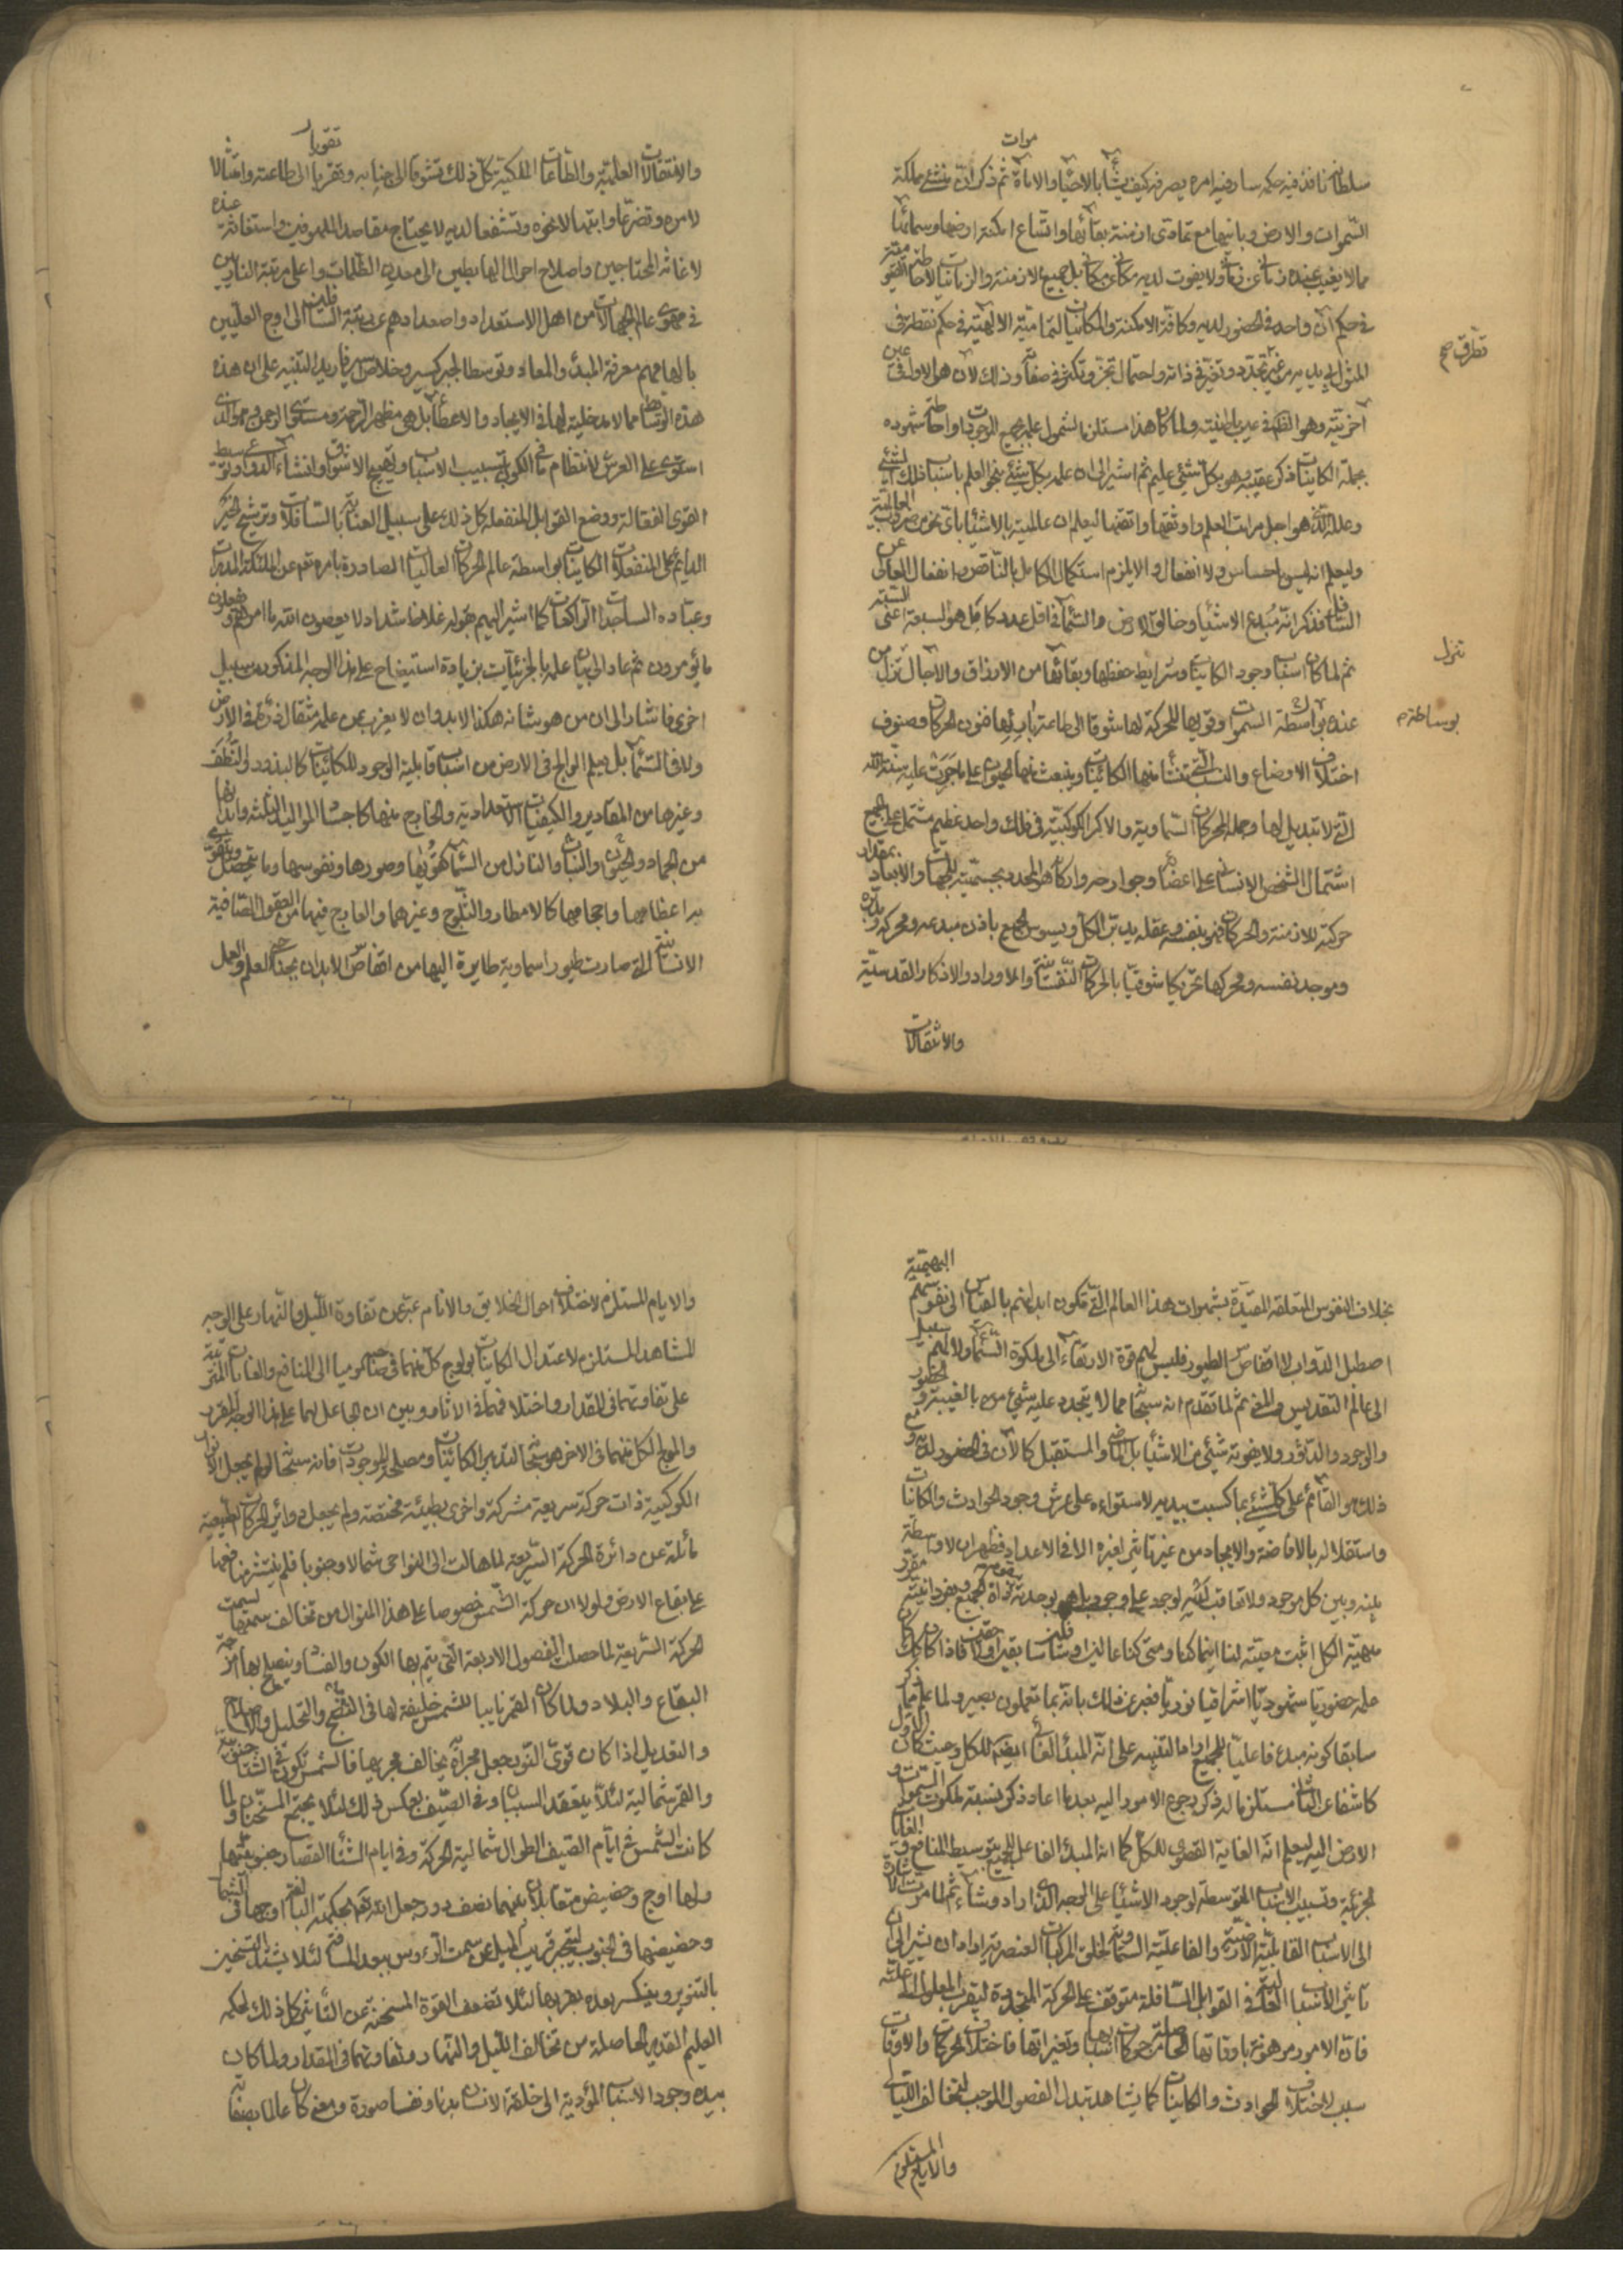 سلطانه نافذ فيه حكمه سار فيه امره يصرفه كيف يشاء بالاحياء والاماتة ثم ذكر انه منشئ مملكة
السموات والارض وما فيها مع تمادى ازمنة بقائها واتساع امكنة ارضها وسمائها
مما لا يغيب عنده زمانى عن زمانى ولا يفوت لديه مكانى عن مكانى بل جميع الازمنة والزمانيات لاحاطته
فى حكم آن واحد فى الحضور لديه وكافة الامكنة والمكانيات لتمامية الالهية فى حكم نقطة
من غير تجدد وتغير فى ذاته واحتمال تجز وتكثر فى صفاته وذلك لان هو الاول فى عين
آخريته وهو الظاهر فى عين باطنيته ولما كان هذا مستلزما لشمول علمه بجميع الموجودات واحاطة شهوده
بجملة الكاينات ذكر عقيبه وهو بكل شئ عليم ثم اشير الى ان علمه بكل شئ بنحو العلم باسباب ذلك الشئ
وعلله الذى هو اجل مراتب العلم واوثقها واتقنها ليعلم ان عالميته بالاشياء باى نحو من ضروب العالمية
وليعلم انه ليس باحساس ولا انفعال والا يلزم استكمال الكامل بالناقص وانفعال العالى عن
السافل فذكر انه مبدع الاشياء وخالق الارض والسماء فى اقل عدد كامل هو لسبعة اعنى الستة
ثم لما كان اسباب وجود الكاينات وشرايط حفظها وبقائها من الارزاق والآجال تنزل من
تنزل
عنده بواسطة السموات وقواها المحركة لها شوقا الى طاعة باريها فنون الحركات وصنوف
بوساطة
اختلاف الاوضاع والنسب التى تنشأ منها الكائينات وينبعث منها الحيوان على ما جرت عليه سنة الله
التى لا تبديل لها وجملة الحركات السماوية والاكر الكوكبية فى فلك واحد عظيم مشتمل على الجميع
اشتمال الشخص الانسانى على اعضائه وجوارحه واركانه هو المحدد بجسميته للجهات والابعاد بمقدار
حركته للازمنة والحركات فهو بنفسه وعقله يدبر الكل ويسوس الجميع باذن مبدعه ومحركه
وموجد نفسه ومحركها تحريكا شوقيا بالحركات النفسانية والاوراد والاذكار القدسية
والانتقالات
والانتقالات العلمية والطاعات الملكية كل ذلك تشوقا الى جنابه وتقربا الى طاعته وامتثالا
لامره وتضرعا وابتهالا نحوه وتشفعا لديه لا يحتاج مقاصد الملهوفين واستغاثة عنده
لاغاثة المحتاجين واصلاح احوال الهابطين الى معدن الظلمات واعلى مرتبة النازلين
فى مهوى عالم الجهالات من اهل الاستعداد واصعادهم عن رتبة السافلين الى اوج العليين
بالهامهم معرفة المبدء والمعاد وتوسطا لجبر كسير وخلاص اسير فاريد التنبيه على ان هذه
هذه الوسائط مما لا مدخلية لها فى الايجاد والاعطاء بل هى مظهر الرحمة ومستوى الرحمن
استوى على العرش لانتظام ما فى الكون بتسبيب الاسباب وتهييج الاشواق وانشاء الدواعى
القوى الفعالة ووضع القوابل المنفعلة كل ذلك على سبيل العناية بالسافلات وترشح الخير
الدايم على المنفعلات الكاينات بواسطة عالم الحركات العاليات الصادرة بامره تعم عن الملائكة
وعباده الساجدات الراكعات كما اشير اليهم بقوله غلاظ شداد لا يعصون الله ما امرهم ويفعلون
ما يؤمرون ثم عاد الى بيان علمه بالجزئيات بزيادة استيضاح على هذا الوجه المذكور بسبيل
اخرى فاشار الى ان من هو شانه هكذا لابد وان لا يعزب عن علمه مثقال ذرة فى الارض
ولا فى السماء بل يعلم الوالج فى الارض من اسباب قابلية الوجود للكائينات كالبذور والنطف
وغيرها من المقادير والكيفيات الاستعدادية والخارج منها كاجساد المواليد الثلثة وابدانها
من الجماد والحيوان والنبات والنازل من السماء كقواها وصورها ونفوسها وما يتحصل
به اعظامها واحجامها كالامطار والثلوج وغيرها والعارج فيها من العقول الصافية
الانسانية التى صارت طيورا سماوية طايرة اليها من اقفاص الابدان بجناحى العلم والعمل
البهيمية
بخلاف النفوس المتعلقة المقيدة بشهوات هذا العالم التى تكون ابدانهم بالقياس الى نفوسهم
اصطبل الدواب لا اقفاص الطيور فليس لهم قوة الارتقاء الى ملكوة السماء ولا لهم سبيل
الى عالم التقديس والمعنى ثم لما تقدم انه سبحانه مما لا يتجدد عليه شئ من بالغيبة والحضور
والوجود والدثور ولا يفوته شئ من الاشياء بل الماضى والمستقبل كالآن فى الحضور لديه
ذلك هو القائم على كل شئ بما كسبت يديه لاستوائه على عرش وجود الحوادث والكائنات
واستقلاله بالافاضة والايجاد من غير تاثير لغيره الا فى الاعداد فظهر ان لا واسطة
بينه وبين كل موجود ولا تعاقب لكثير لوجود على وجوده بل هو بوحدته
مهية الكل اثبت معيته لنا اينما كنا ومتى كنا عالين او سافلين سابقين او لاحقين فاذا كان كذلك
علمه حضوريا شهوديا اشراقيا نوريا فعبر عن ذلك بانه بما تعملون بصير ولما علم مما
سابقا كونه مبدء فاعليا للجميع اراد التنبيه على انه المبدء الغائى ايضا للكل وحيث كان الاول
كاشفا عن الثانى مستلزما له ذكر رجوع الامور اليه بعد ما اعاد ذكر نسبة ملكوت السموات و
الارض اليه ليعلم انه الغاية القصوى للكل كما انه المبدء الفاعل للجميع بتوسيط المنافع والغايات
الجزئية وتسبيب الاسباب المتوسطة لوجود الاشياء على الوجه الذى اراد وشاء ثم لما مرت الاشارة
الى الاسباب القابلية الارضية والفاعلية السماوية لخلق المركبات العنصرية اراد ان يشير الى ان
تاثير الاسباب العالية فى القوابل السافلة متوقف على الحركة المتجددة ليقرب المعلول الى علته
فان الامور مرهونة باوقاتها الحاصلة من حركات اسبابها وتغيراتها فاختلاف الحركات والاوقات
سبب لاختلاف الحوادث والكاينات كما يشاهد تبدل الفصول الموجب لتخالف الليالى
والايام المستلزم
والايام المستلزم لاختلاف احوال الخلايق والانام عبر عن تفاوة الليل والنهار على الوجه
المشاهد المستلزم لاعتدال الكاينات بولوج كل منهما فى صاحبه كوميا الى المنافع والغايات
على تفاوتهما فى المقدار واختلافهما فى الآثار وبين ان الجاعل لهما على هذا الوجه المقرر
والمولج لكل منهما فى الآخر هو سبحانه لتدبير الكائنات ومصلحة الموجودات فانه سبحانه لو لم يجعل
الكوكبية ذات حركة سريعة مشتركة واخرى بطيئة مختصة ولم يجعل دوائر الحركات البطيئة
مائلة عن دائرة الحركة السريعة لما مالت الى النواحى شمالا وجنوبا فلم ينتشر نفعها
على بقاع الارض ولولا ان حركة الشمس خصوصا على هذا المنوال من تخالف سمتها لسمت
الحركة السريعة لما حصلت الفصول الاربعة التى يتم بها الكون والفساد ويصلح بها امزجة
البقاع والبلاد ولما كان القمر نايبا للشمس خليفة لها فى النضج والتحليل
والتعديل اذا كان قوى النور جعل مجراه يخالف مجريها فالشمس تكون فى الشتاء جنوبية
والقمر شمالية لئلا ينعقد السببان وفى الصيف بعكس ذلك لئلا يجتمع المسخنان ولما
كانت الشمس فى ايام الصيف الطوال شمالية الحركة وفى ايام الشتاء القصار جنوبيتها
ولها اوج وحضيض متقابلان بينهما نصف دور جعل الله تعم بحكمته البالغة اوجها فى الشمال
وحضيضها فى الجنوب لينجبر قرب الميل عن سمت الرءوس ببعد المسافة لئلا يشتد التسخين
بالتنوير وينكسر بعده بقربها لئلا تضعف القوة المسخنة عن التاثير كل ذلك لحكمة
العليم القدير الحاصلة من تخالف الليل والنهار وتفاوتهما فى المقدار ولما كان
بيده وجود الاسباب المؤدية الى خلقة الانسان بدنا ونفسا صورة ومعنى كان عالما بصفاته